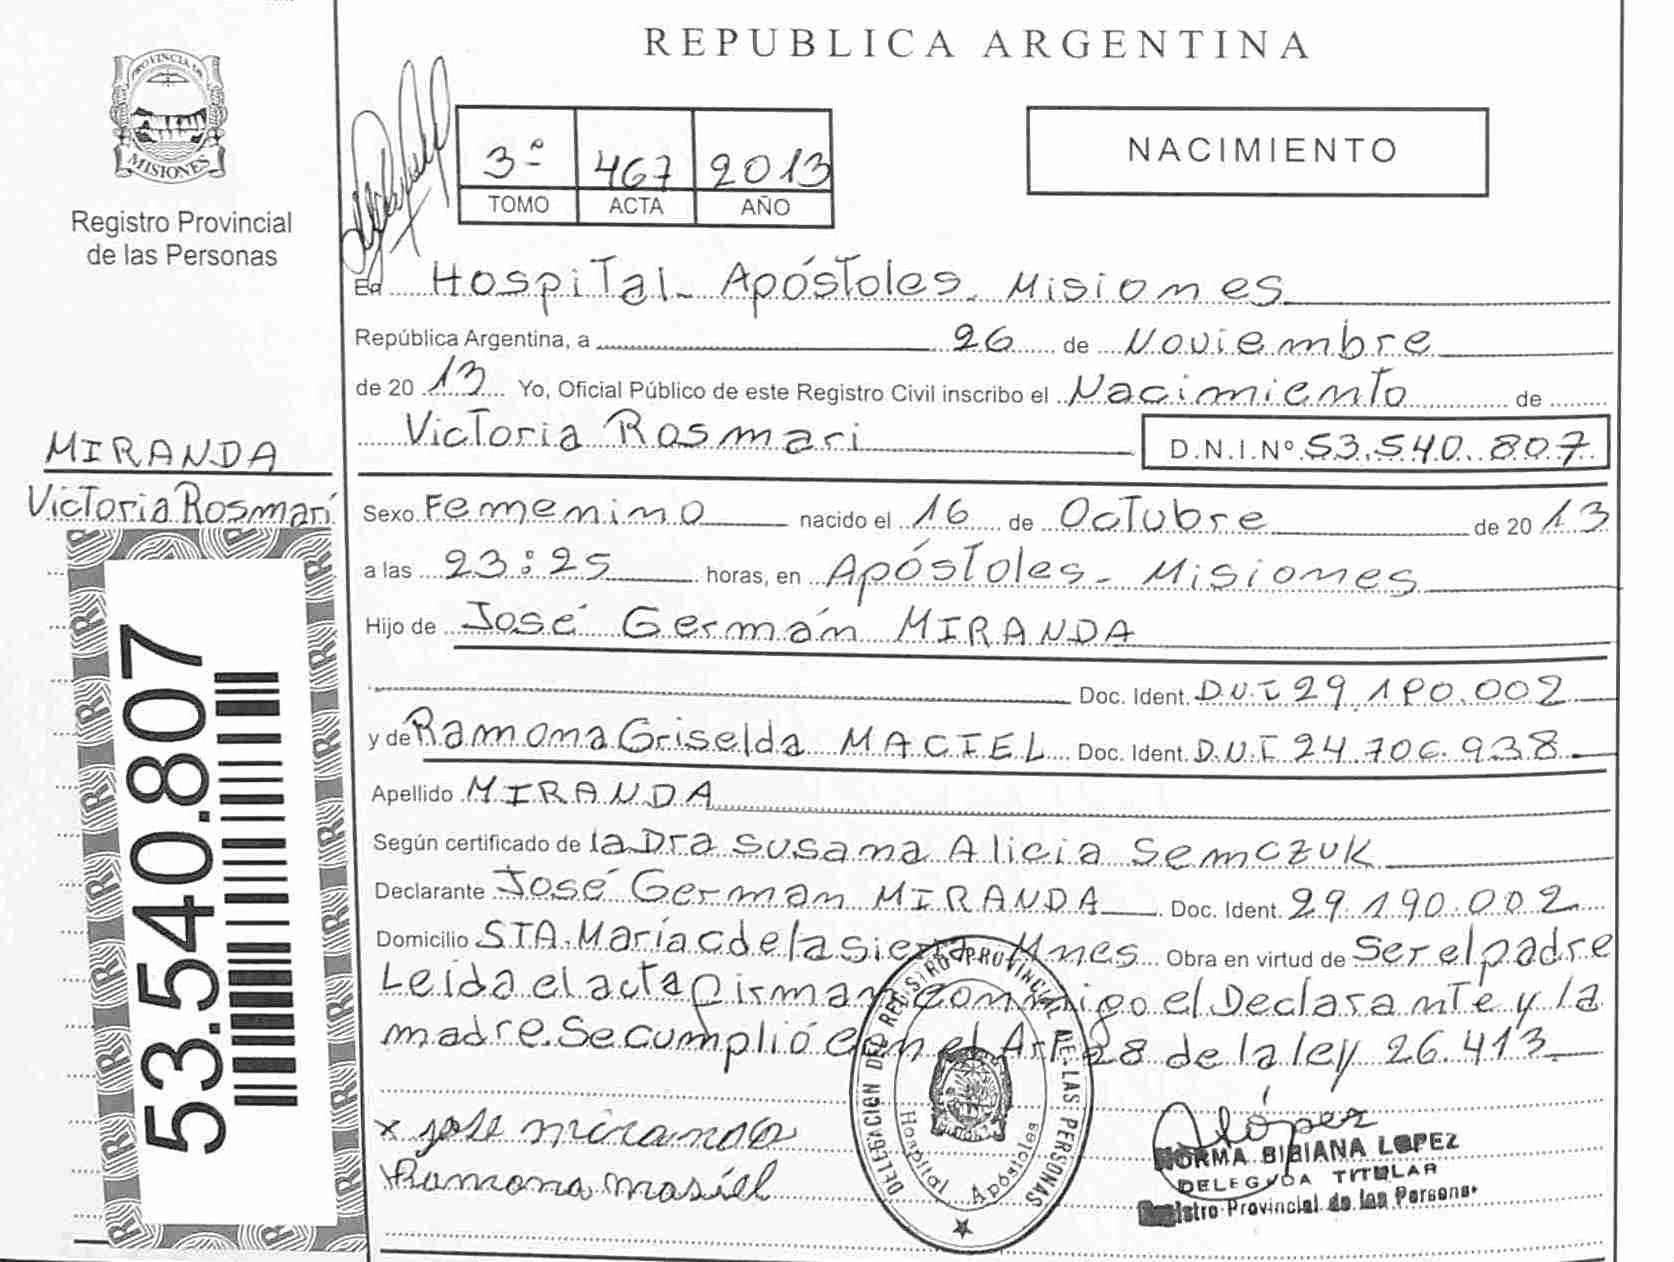 REPUBLICA ARGENTINA
PROVINCIA DE
MISIONES
Registro Provincial
de las Personas
3º 467 2013
TOMO ACTA AÑO
NACIMIENTO
En Hospital - Apóstoles - Misiones
República Argentina, a 26 de Noviembre
de 2013 Yo, Oficial Público de este Registro Civil inscribo el Nacimiento de
Victoria Rosmari D.N.I.Nº 53.540.807
MIRANDA
Victoria Rosmarí
53.540.807
Sexo Femenino nacido el 16 de Octubre de 2013
a las 23:25 horas, en Apóstoles - Misiones
Hijo de José Germán MIRANDA
Doc. Ident. D.N.I 29.190.002
y de Ramona Griselda MACIEL Doc. Ident. D.N.I 24.706.938
Apellido MIRANDA
Según certificado de la Dra Susana Alicia Semczuk
Declarante José German MIRANDA Doc. Ident. 29.190.002
Domicilio STA. María c de la sierra Mnes Obra en virtud de Ser el padre
Leida el acta firman conmigo el Declarante y la
madre. Se cumplió con el Art 28 de la ley 26.413
x jose miranda
Ramona masiel
DELEGACION DEL REGISTRO PROVINCIAL DE LAS PERSONAS
Hospital Apóstoles
López
NORMA BIBIANA LOPEZ
DELEGADA TITULAR
Registro Provincial de las Personas